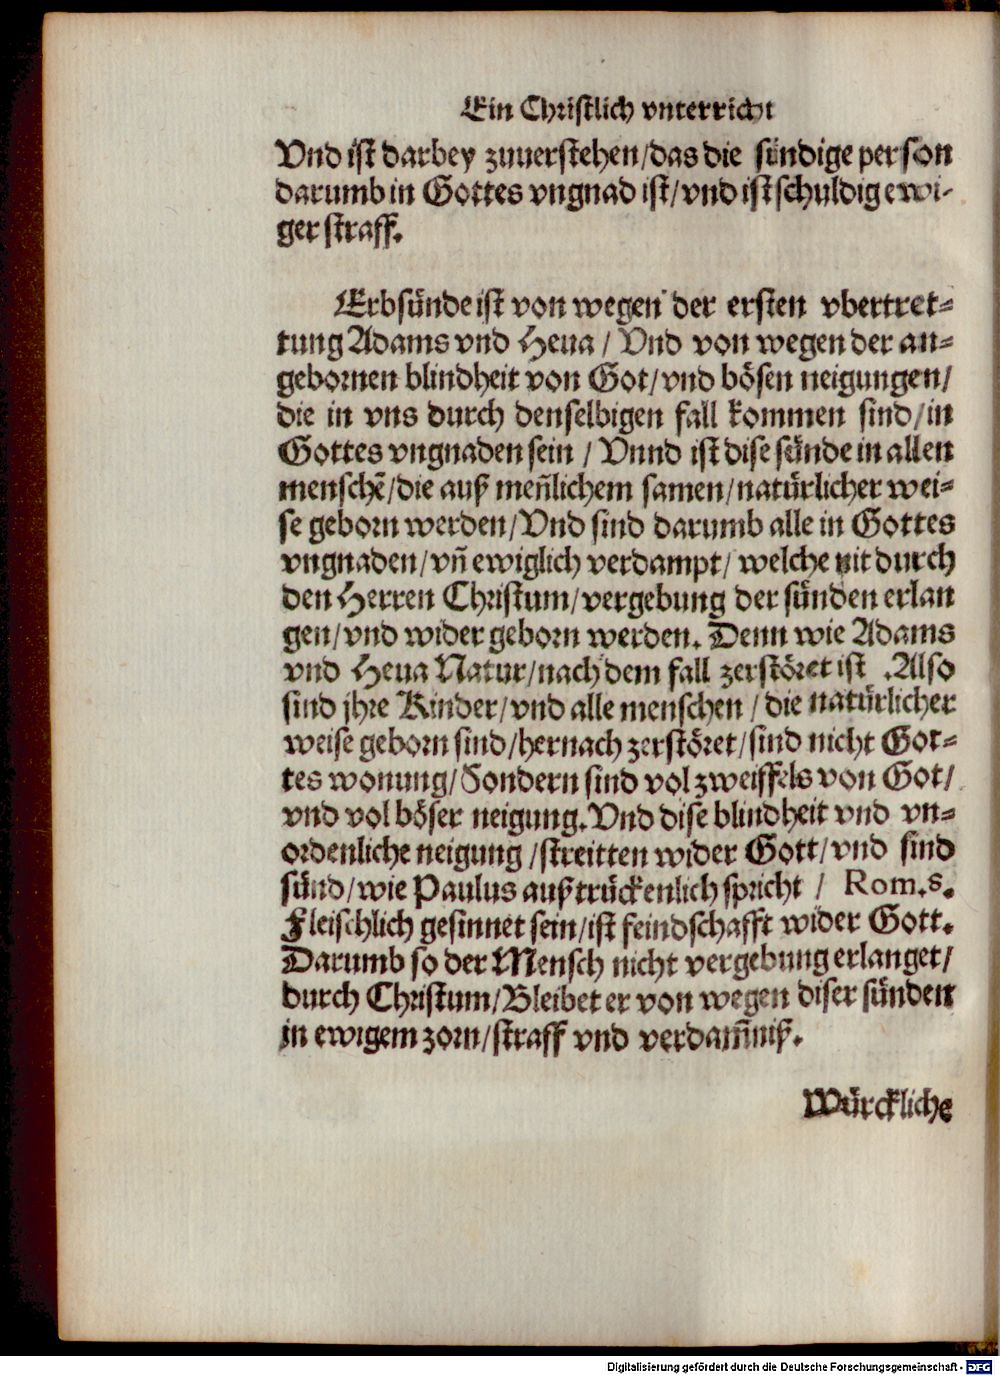 Ein Christlich vnterricht
Vnd ist darbey zuuerstehen/das die sündige person
darumb in Gottes vngnad ist/vnd ist schuldig ewi-
ger straff.
Erbsünde ist von wegen der ersten vbertret-
tung Adams vnd Heua / Vnd von wegen der an-
gebornen blindheit von Got/vnd bösen neigungen/
die in vns durch denselbigen fall kommen sind/in
Gottes vngnaden sein / Vnnd ist dise sünde in allen
menschẽ/die auß meñlichem samen/natürlicher wei-
se geborn werden/Vnd sind darumb alle in Gottes
vngnaden/vñ ewiglich verdampt/ welche nit durch
den Herren Christum/vergebung der sünden erlan
gen/vnd wider geborn werden. Denn wie Adams
vnd Heua Natur/nach dem fall zerstöret ist .Also
sind jhre Kinder/vnd alle menschen / die natürlicher
weise geborn sind/hernach zerstöret/sind nicht Got-
tes wonung/Sondern sind vol zweiffels von Got/
vnd vol böser neigung.Vnd dise blindheit vnd vn-
ordenliche neigung /streitten wider Gott/vnd sind
sünd/wie Paulus außtrückenlich spricht / Rom.8.
Fleischlich gesinnet sein/ist feindschafft wider Gott.
Darumb so der Mensch nicht vergebung erlanget/
durch Christum/Bleibet er von wegen diser sünden
in ewigem zorn/straff vnd verdam̃niß.
Würckliche
Digitalisierung gefördert durch die Deutsche Forschungsgemeinschaft - DFG